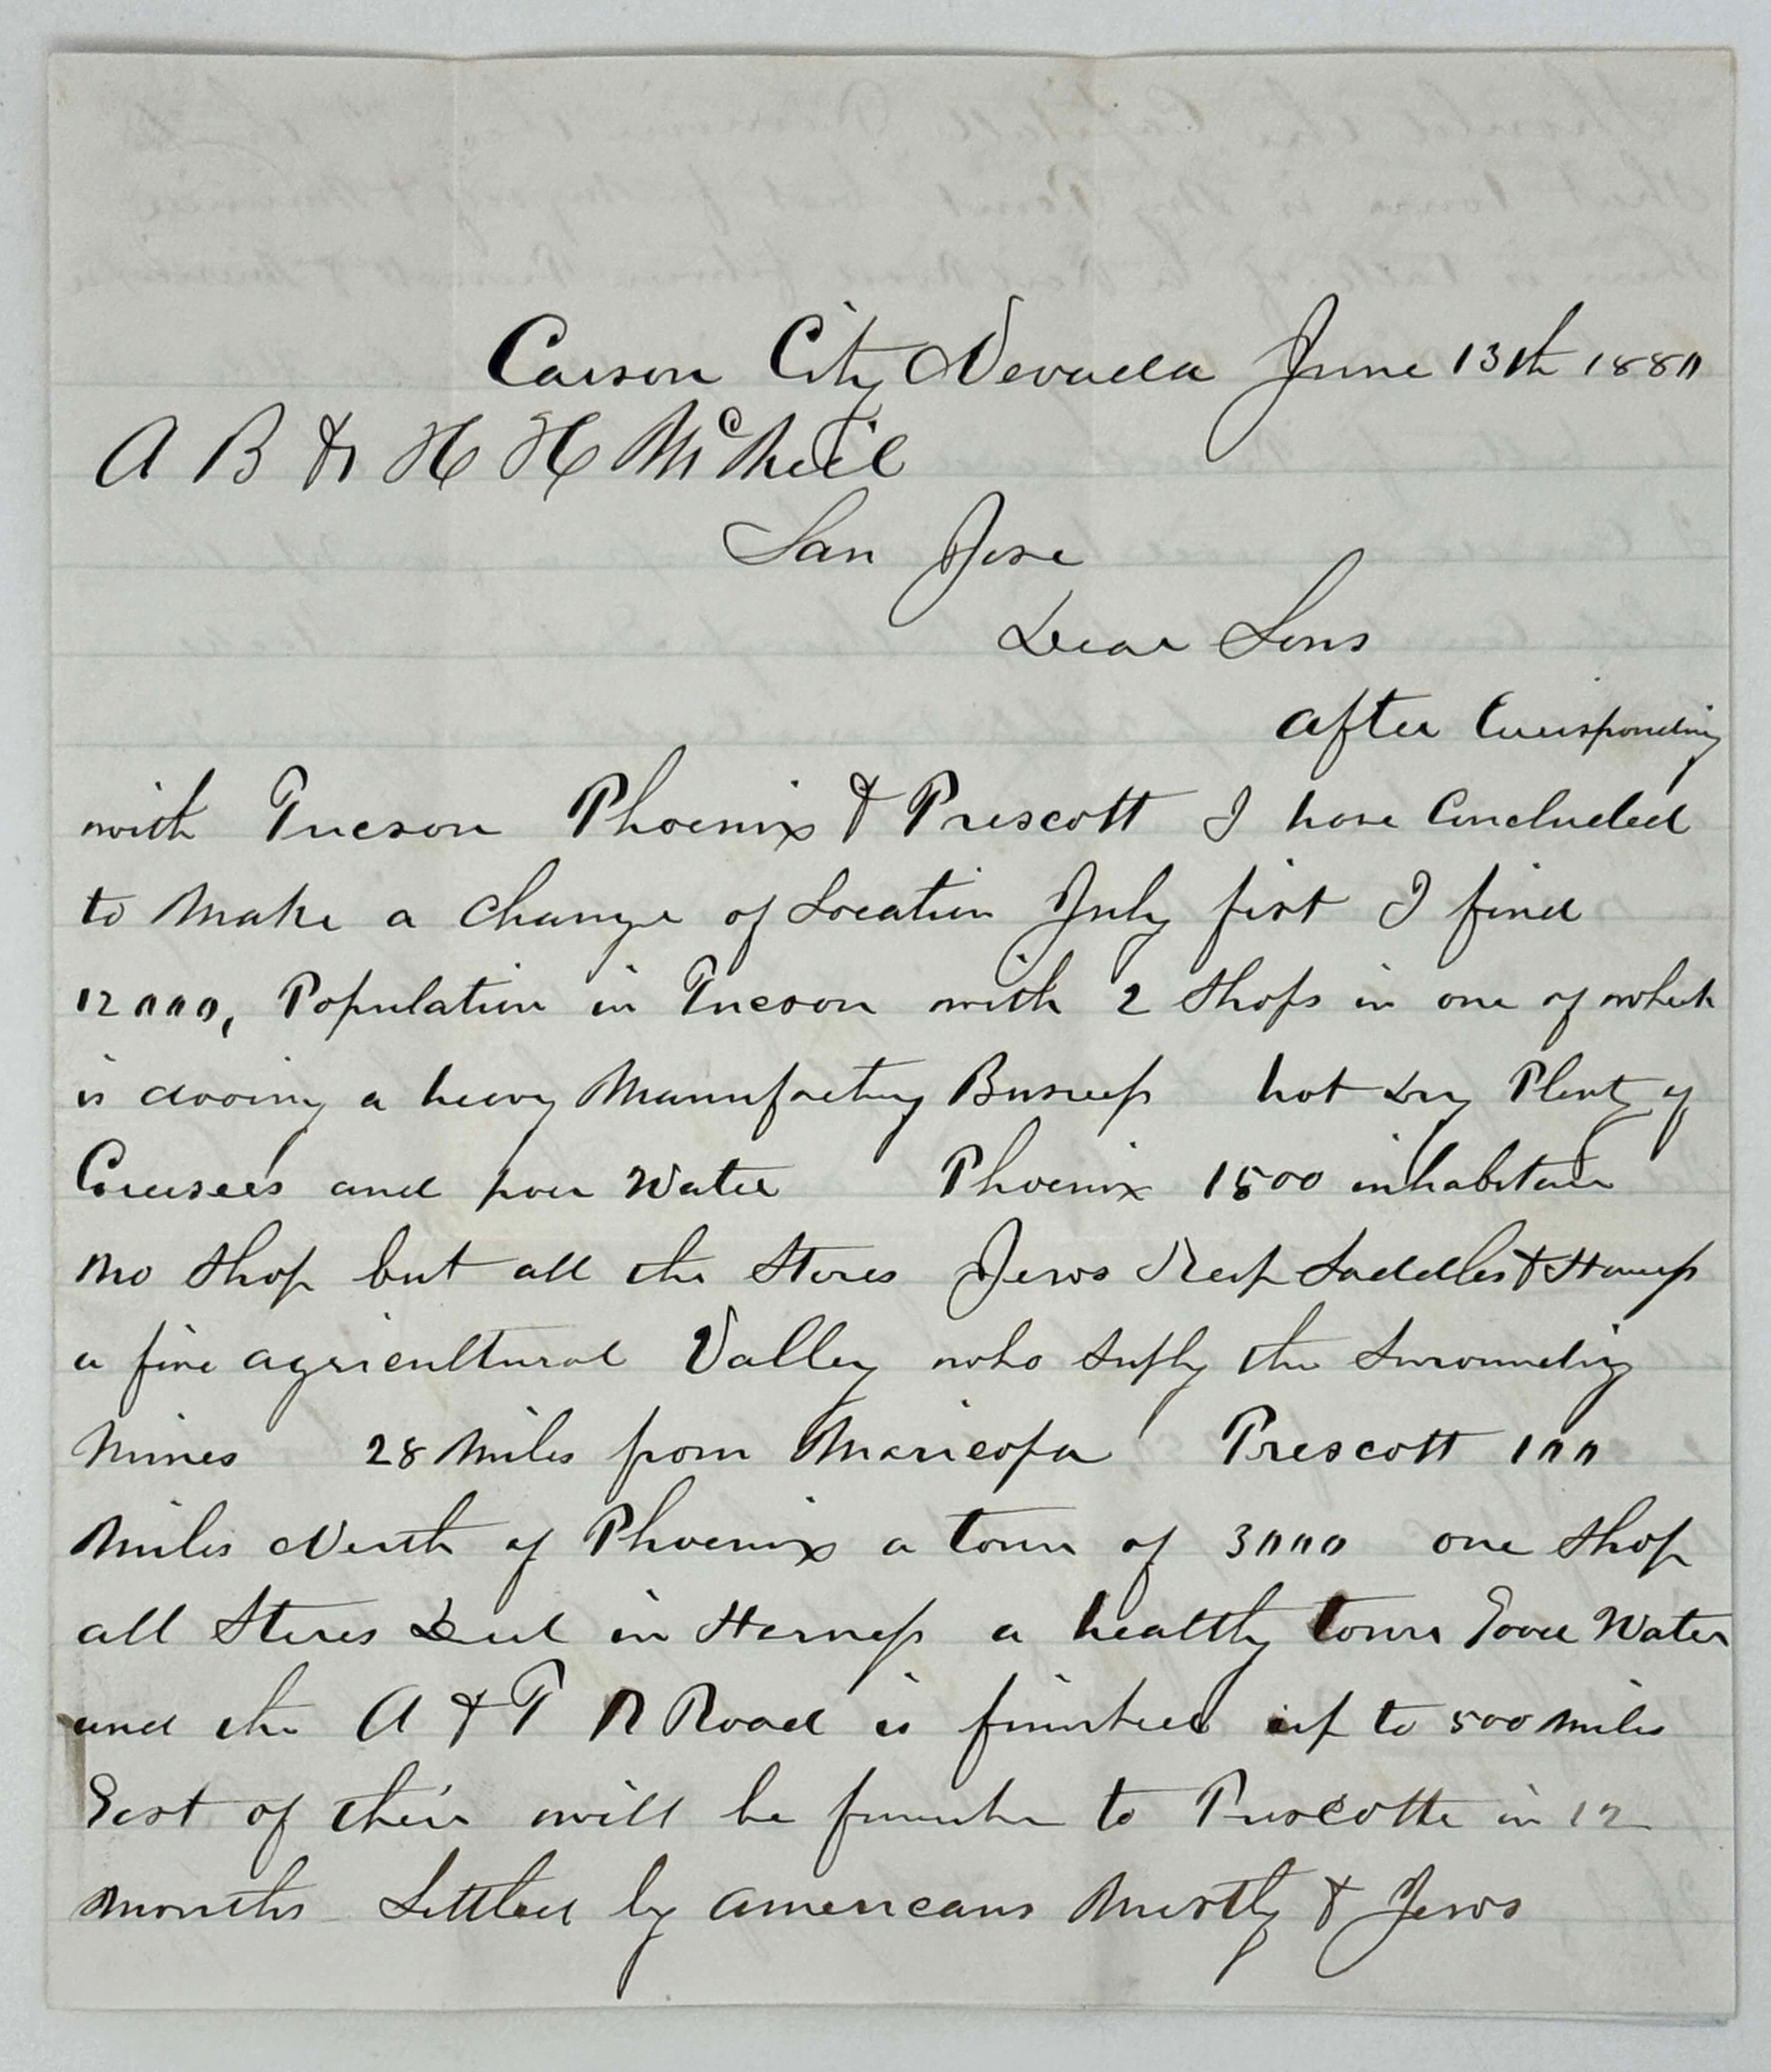 Carson City Nevada June 13th 1880
A B & H H McNeil
San Jose
Dear Sons
after Corrisponding
with Tucson Phoenix & Prescott I have Concluded
to Make a change of Location July first I find
12000, Population in Tucson with 2 Shops in one of which
is dooing a heavy Manufacturing Business hot Dry Plenty of
and poor Water Phoenix 1500 inhabitants
no Shop but all the Stores Jews Keep Saddles & Harness
a fine agricultural Valley who Suply the Surrounding
Mines 28 Miles from Maricopa Prescott 100
Miles North of Phoenix a town of 3000 one Shop
all Stores Deal in Harness a healthy town Good Water
and the A & P R Road is finished up to 500 Miles
East of their will be finished to Prescotte in 12
Months Settled by americans Mostly & Jews